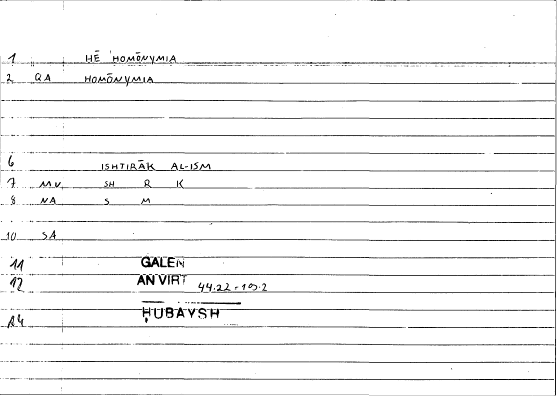 1 HĒ HOMŌNYMIA
2 QA HOMŌNYMIA
6 ISHTIRĀK AL-ISM
7 MU SH R K
8 NA S M
10 SA
11 GALEN
12 AN VIRT 44.22 - 103.2
14 ḤUBAYSH